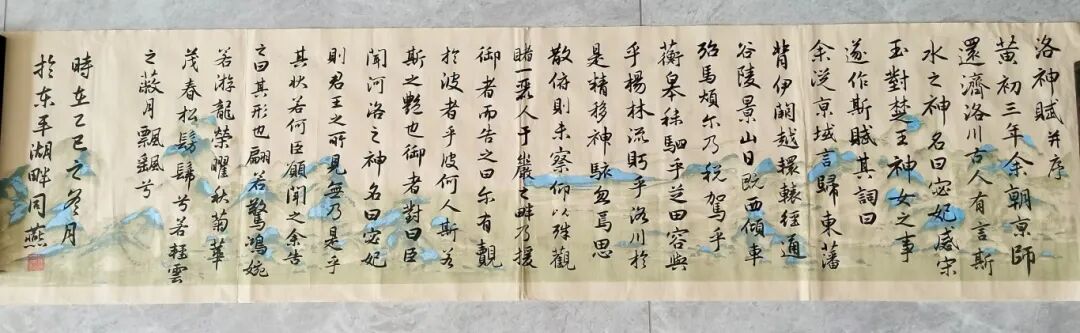 洛神賦并序
黄初三年余朝京師
還濟洛川古人有言斯
水之神名曰宓妃感宋
玉對楚王神女之事
遂作斯賦其詞曰
余從京域言歸東藩
背伊闕越轘轅經通
谷陵景山日既西傾車
殆馬煩尔乃税駕乎
蘅皋秣駟乎芝田容與
乎楊林流眄乎洛川於
是精移神駭忽焉思
散俯則未察仰以殊觀
睹一麗人于巖之畔乃援
御者而告之曰尔有覿
於彼者乎彼何人斯若
斯之艷也御者對曰臣
聞河洛之神名曰宓妃
則君王之所見無乃是乎
其狀若何臣願聞之余告
之曰其形也翩若驚鴻婉
若游龍榮曜秋菊華
茂春松髣髴兮若輕雲
之蔽月飄颻兮
時在乙巳之冬月
於东平湖畔同燕